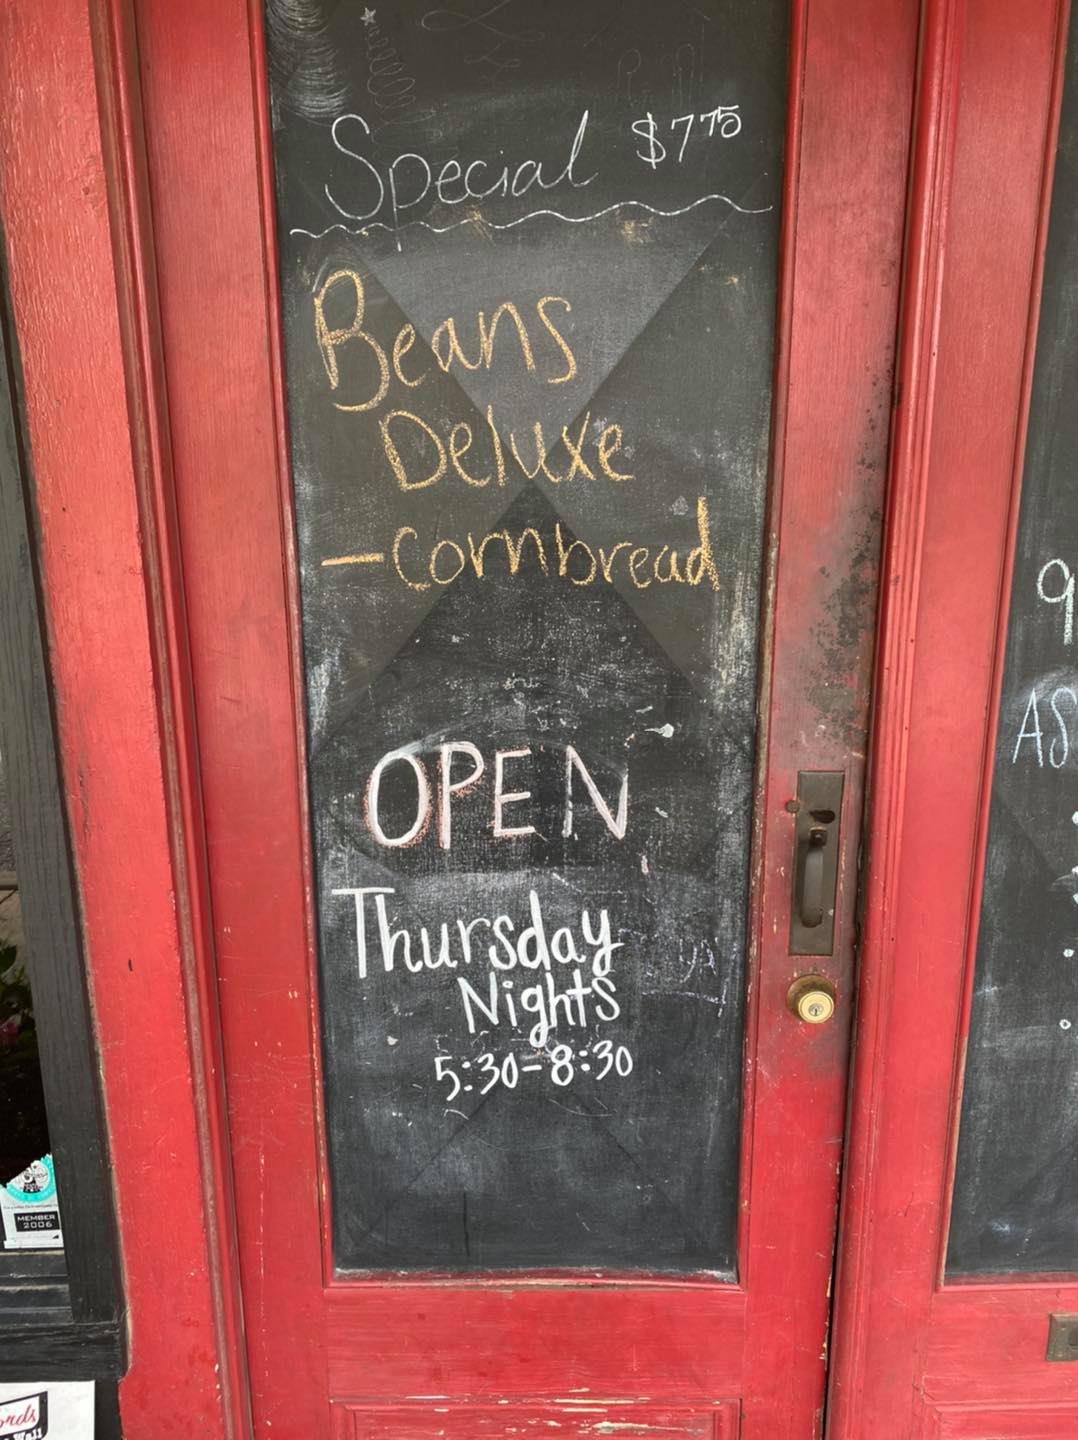 Special $7.75
Beans
Deluxe
-Cornbread
OPEN
Thursday
Nights
5:30-8:30
9
AS
MEMBER
2006
Wall